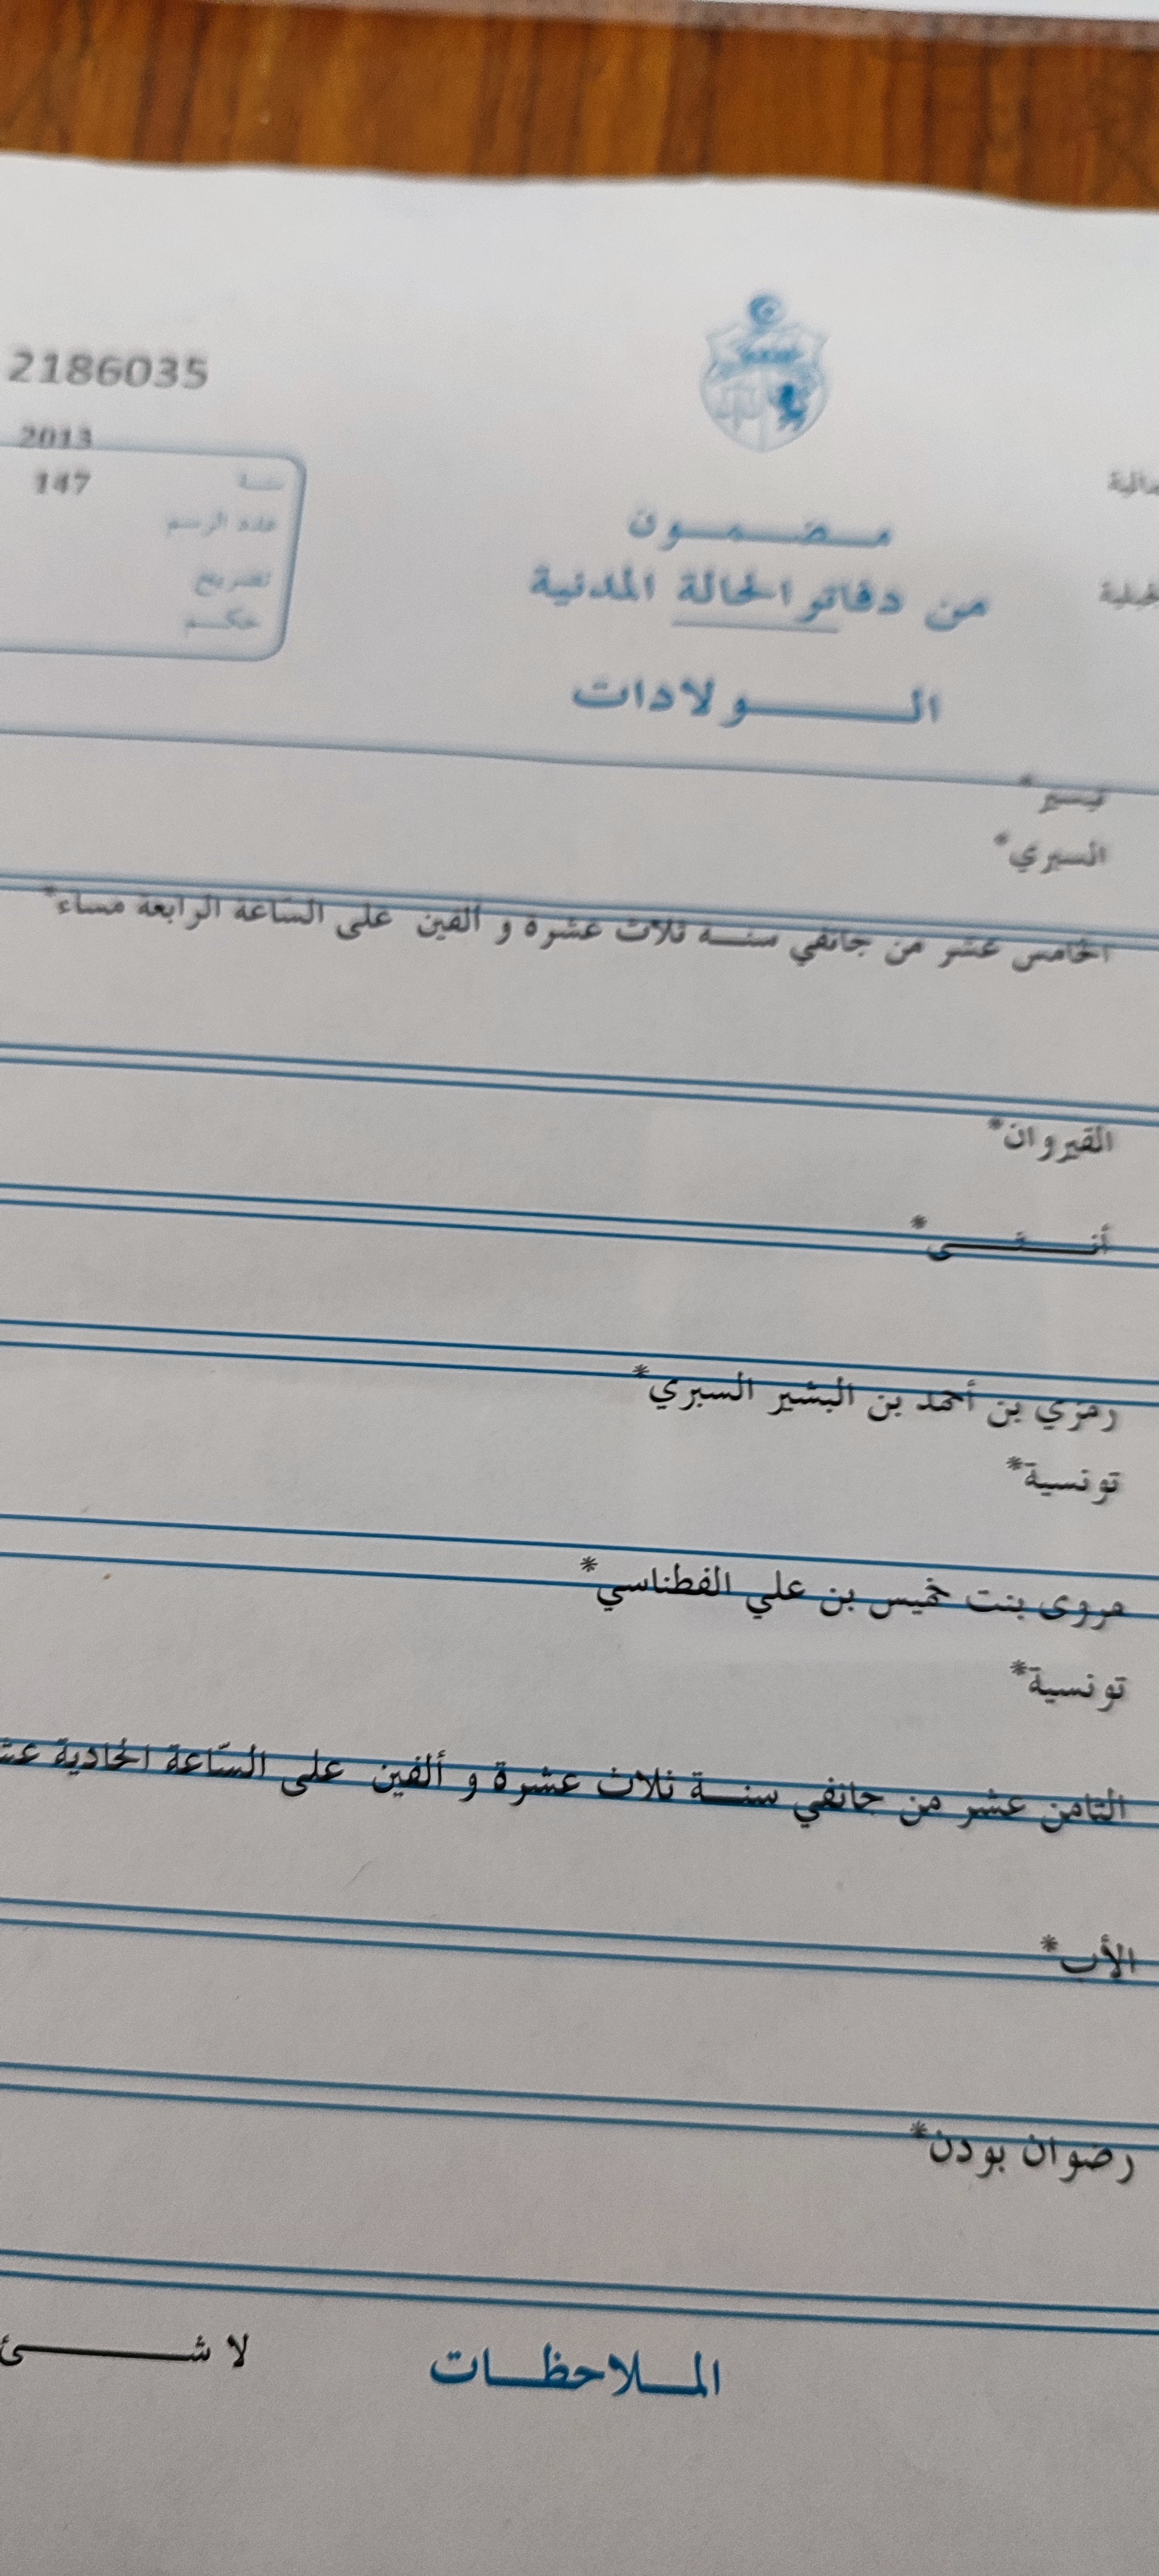 2186035
2013
147
سنة
عدد الرسم
تصريح
حكم
مضمون
من دفاتر الحالة المدنية
الولادات
تيسير*
السبري*
الخامس عشر من جانفي سنة ثلاث عشرة و ألفين على السّاعة الرابعة مساء*
القيروان*
أنثى*
رمزي بن أحمد بن البشير السبري*
تونسية*
مروى بنت خميس بن علي الفطناسي*
تونسية*
الثامن عشر من جانفي سنة ثلاث عشرة و ألفين على السّاعة الحادية
الأب*
رضوان بودن*
الملاحظات
لا شئ